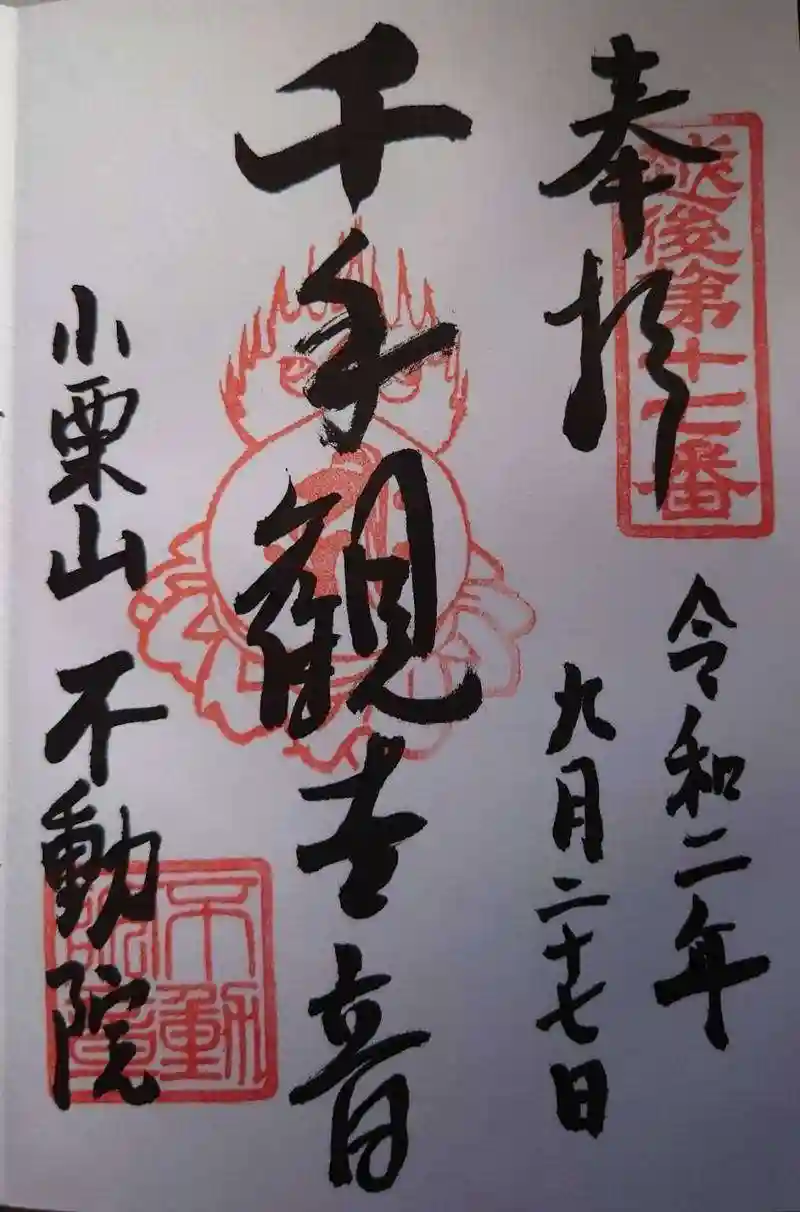 奉拝
越後第十七番
令和二年
九月二十七日
千手観世音
小栗山 不動院
不動院